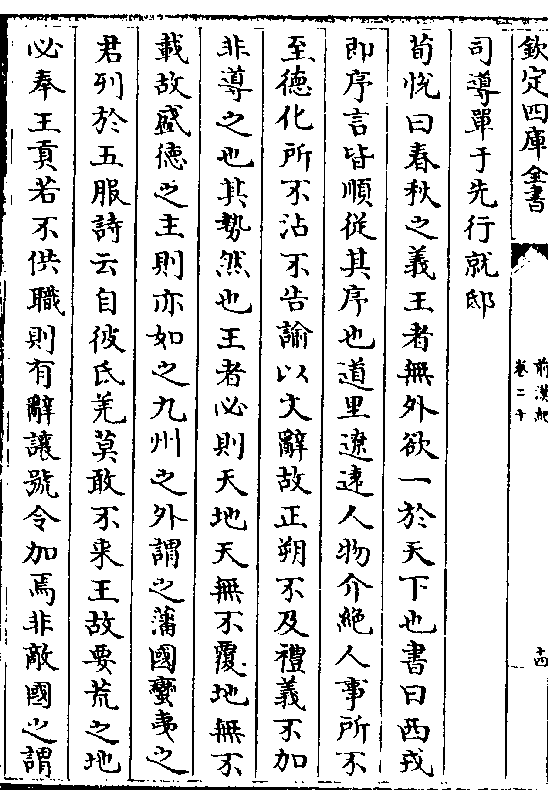 欽定四庫全書
前漢紀
卷二十
十四
司導單于先行就邸
荀恱曰春秋之義王者無外欲一於天下也書曰西戎
即序言皆順從其序也道里遼逺人物介絶人事所不
至德化所不沾不告諭以文辭故正朔不及禮義不加
非導之也其勢然也王者必則天地天無不覆地無不
載故盛德之主則亦如之九州之外謂之藩國蠻夷之
君列於五服詩云自彼氐羌莫敢不来王故要荒之地
必奉王貢若不供職則有辭讓號令加焉非敵國之謂